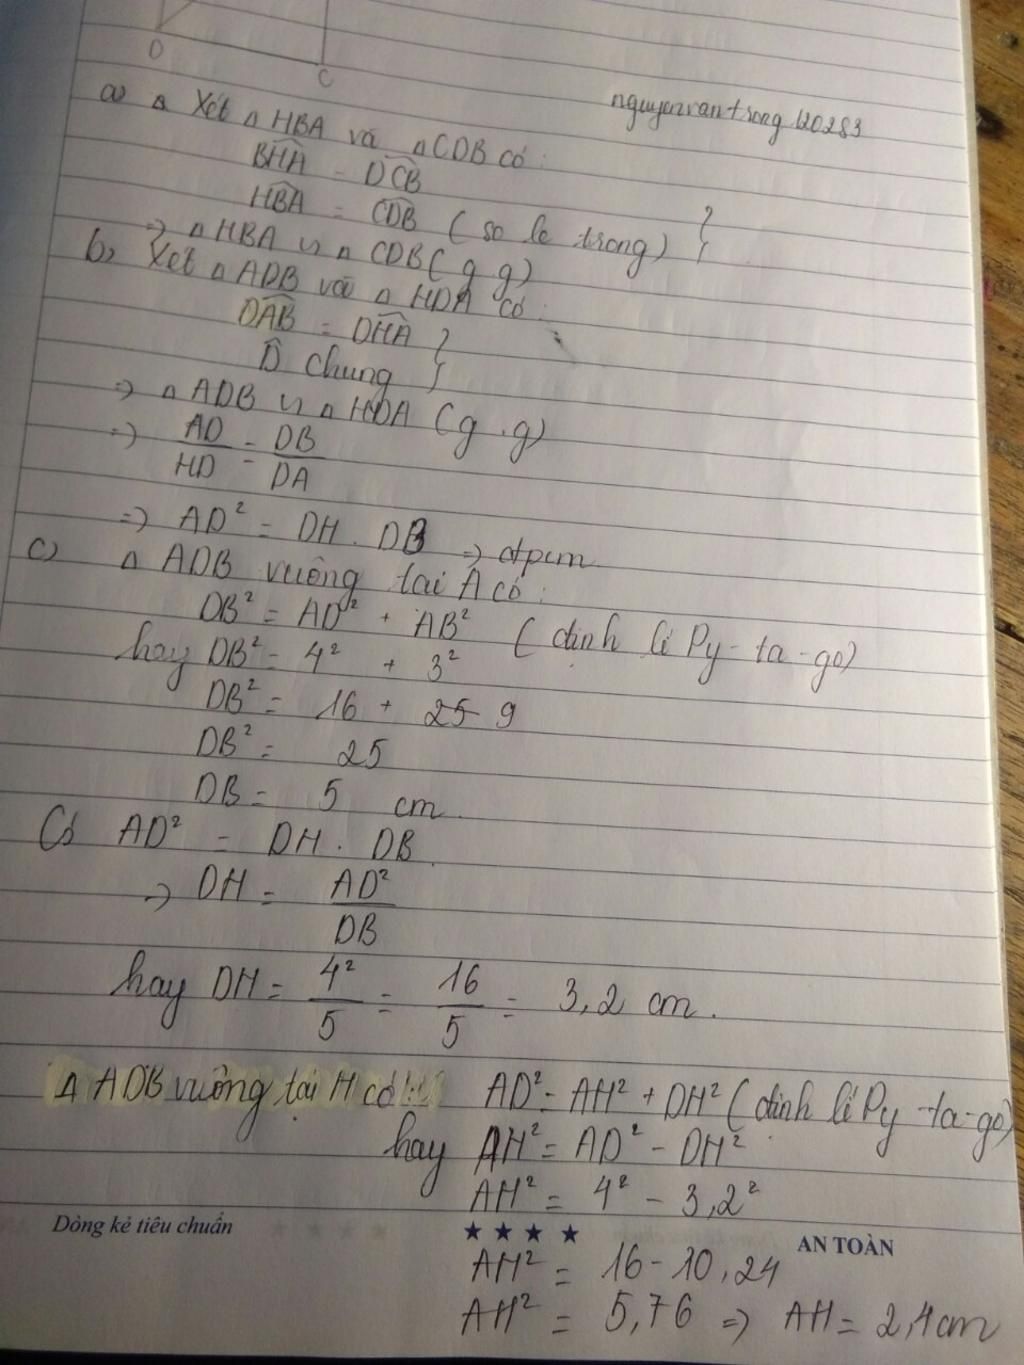 D
C
nguyenvantrong120283
a) △ Xét △HBA và △CDB có:
BHA = DCB
HBA = CDB (so le trong) }
=> △HBA ∽ △CDB (g.g)
b, Xét △ADB và △HDA có:
DAB = DHA }
D̂ chung
=> △ADB ∽ △HDA (g.g)
=> AD/HD = DB/DA
=> AD² = DH . DB => đpcm
c) △ADB vuông tại A có:
DB² = AD² + AB² (định lí Py-ta-go)
hay DB² = 4² + 3²
DB² = 16 + 25 9
DB² = 25
DB = 5 cm.
Có AD² = DH . DB.
=> DH = AD²/DB
hay DH = 4²/5 = 16/5 = 3,2 cm.
△ ADB vuông tại H có: AD² = AH² + DH² (định lí Py-ta-go)
hay AH² = AD² - DH²
AH² = 4² - 3,2²
Dòng kẻ tiêu chuẩn ★ ★ ★ ★ AN TOÀN
AH² = 16 - 10,24
AH² = 5,76 => AH = 2,4cm